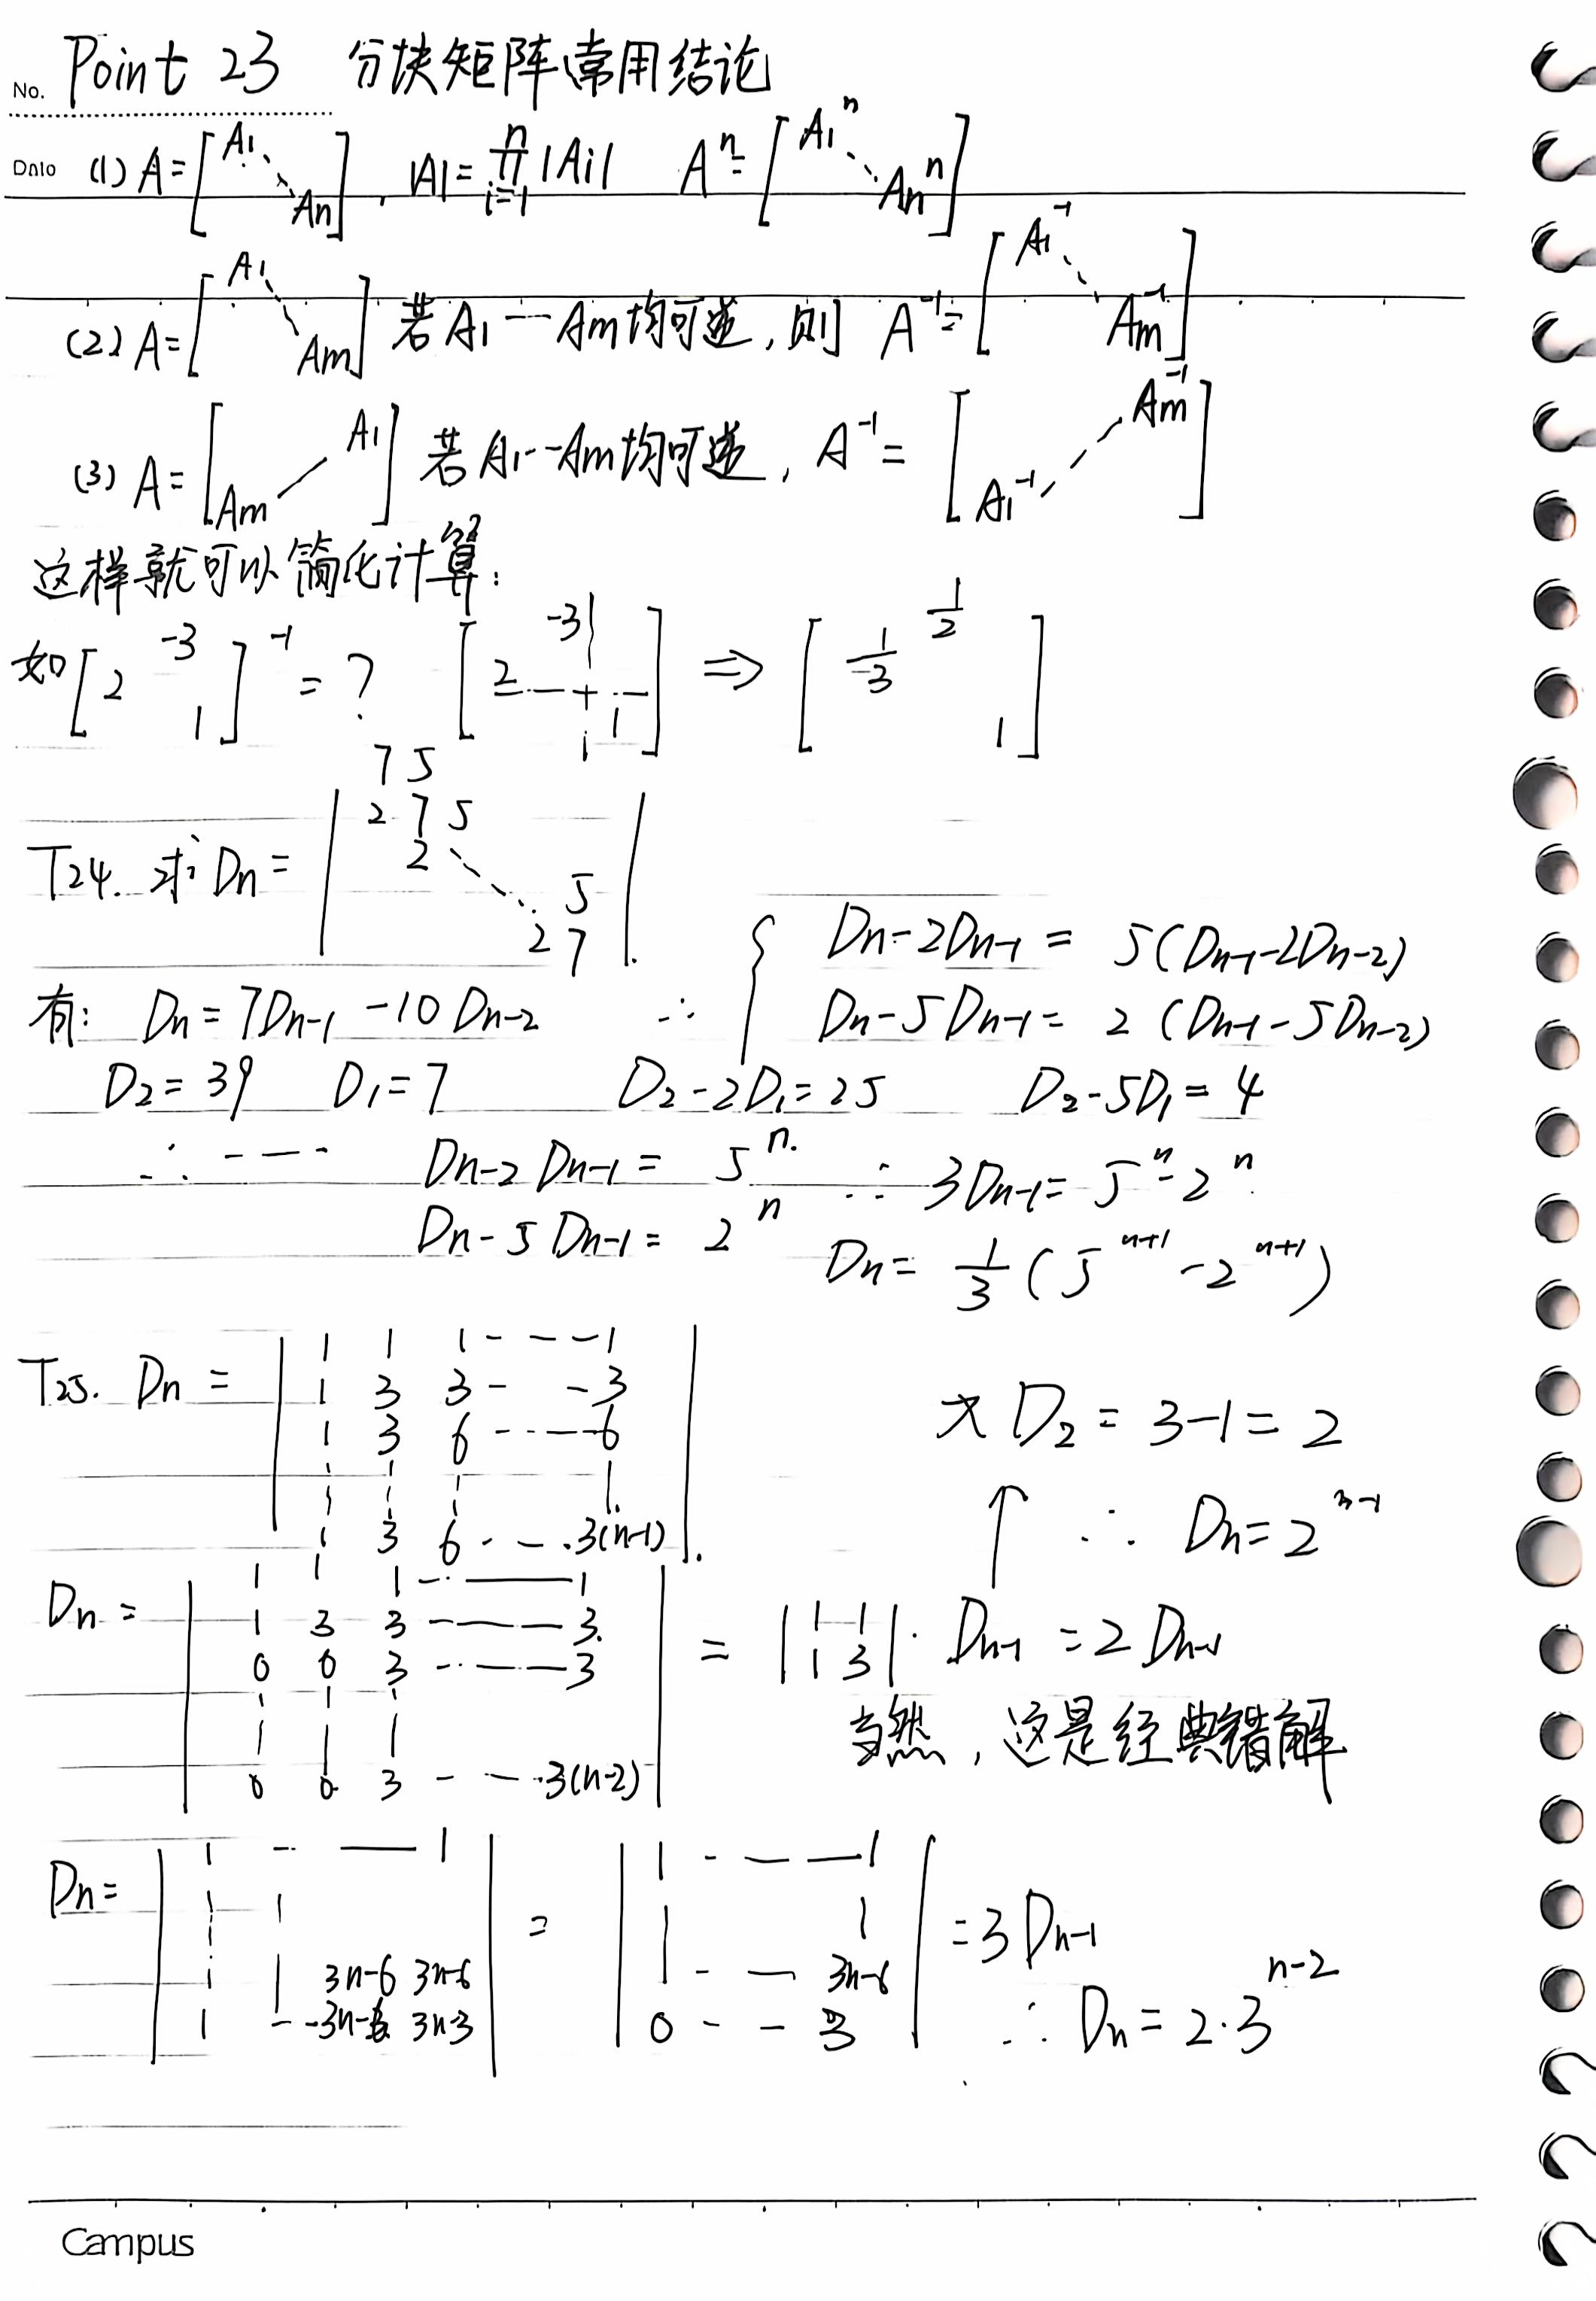 Point 23 分块矩阵常用结论
No.
Date (1) A=[A1 ⋱ An], |A|=∏_{i=1}^{n}|Ai| A^n=[A1^n ⋱ An^n]
(2) A=[A1 ⋱ Am] 若A1---Am均可逆,则 A^-1=[A1^-1 ⋱ Am^-1]
(3) A=[Am ⋰ A1] 若A1--Am均可逆, A^-1=[A1^-1 ⋰ Am^-1]
这样就可以简化计算:
如[-3
2
1]^-1=? [-3
2
1] ⇒ [1/2
1/-3
1]
T24. 求Dn=|7 5
2 7 5
2 ⋱ 5
2 7|.
有: Dn=7Dn-1-10Dn-2 ∴ { Dn-2Dn-1=5(Dn-1-2Dn-2)
Dn-5Dn-1=2(Dn-1-5Dn-2)
D2=39 D1=7 D2-2D1=25 D2-5D1=4
∴ ---- Dn-2Dn-1=5^n. ∴ 3Dn-1=5^n-2^n.
Dn-5Dn-1=2^n Dn=1/3(5^{n+1}-2^{n+1})
T25. Dn=|1 1 1----1
1 3 3- -3
1 3 6-----6
1 3 6---3(n-1)|.
又D2=3-1=2
↑ ∴ Dn=2^{n-1}
Dn=|1 1 1----1
1 3 3----3.
0 0 3----3
0 0 3---3(n-2)| = |1 1
1 3|·Dn-1=2Dn-1
当然,这是经典错解
Dn=|1 - — 1
1 1
1 1 3n-6 3n-6
1 --3n-6 3n-3| = |1---1
1 1
1 - — 3n-6
0 - - 3| =3Dn-1
∴ Dn=2·3^{n-2}
Campus